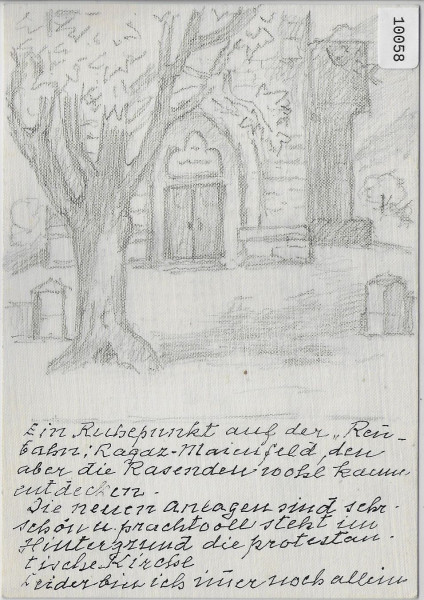 10058
Ein Ruhepunkt auf der „Ren-
bahn; Ragaz-Maienfeld, den
aber die Rasenden wohl kaum
entdecken.
Die neuen Anlagen sind sehr
schön u. prachtvoll steht im
Hintergrund die protestan-
tische Kirche
Leider bin ich im̄er noch allein